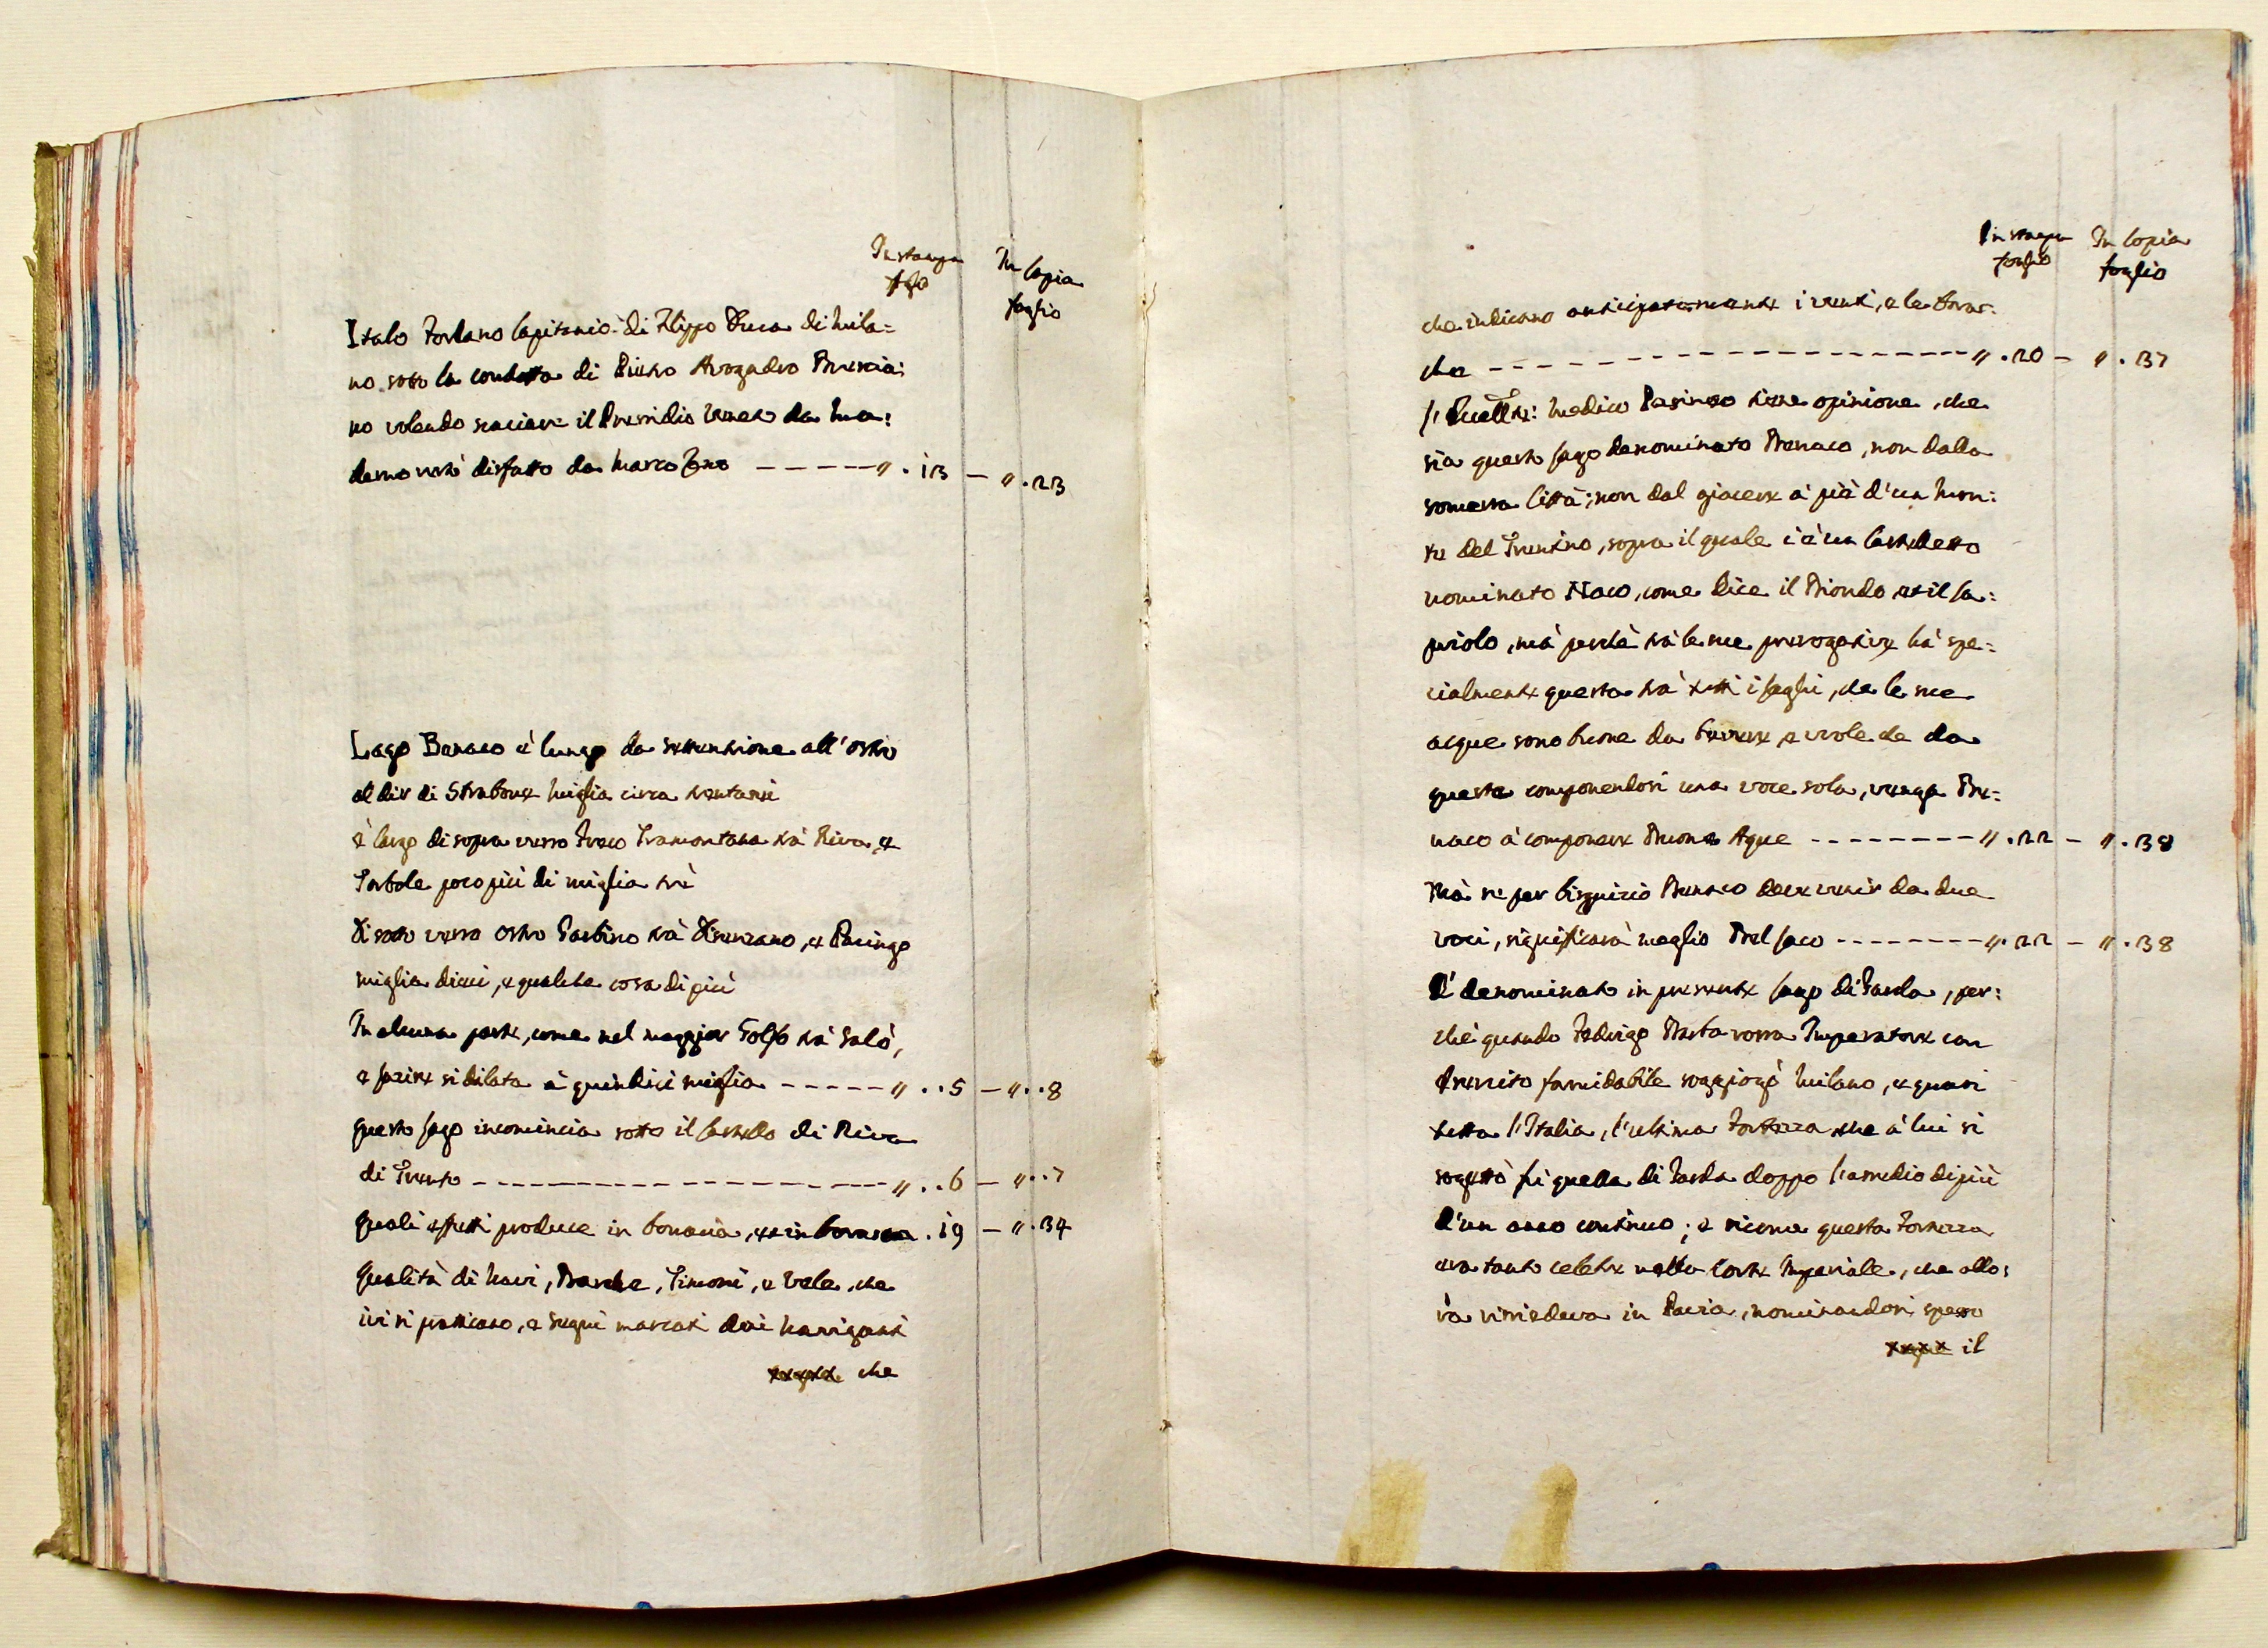 In stampa
foglio
In Copia
foglio
Italo Forlano Capitanio di Filippo Duca di Mila=
no sotto la condotta di Pietro Avogadro Brescia:
no volendo scaciare il Presidio Veneto da Ma:
derno restò disfatto da Marco Zeno ------ ,, . 13 - ,, . 23
Lago Benaco è lungo da settentrione all'ostro
al dir di Strabone miglia circa trentasei
è largo di sopra verso Greco Tramontana trà Riva, e
Torbole poco più di miglia trè
Di sotto verso Ostro Garbino trà Disenzano, e Pacingo
miglia dieci, e qualche cosa di più
In alcuna parte, come nel maggior Golfo trà Salò,
e Lazise si dilata à quindici miglia ----- ,, . . 5 - ,, . . 8
questo Lago incomincia sotto il Castello di Riva
di Trento ------------------ ,, . . 6 - ,, . . 7
quali effetti produce in bonacia, et in borasca . 19 - ,, . 34
Qualità di Navi, Barche, Timoni, e Vele, che
ivi si praticano, e segni marcati dai Naviganti
che
In stampa
foglio
In Copia
foglio
che indicano anticipatamente i venti, e le boras:
che ------------------ ,, . 20 - ,, . 37
l' Medico Pasineo tiene opinione, che
sia questo Lago denominato Benaco, non dalla
somersa Città; non dal giacere à piè d'un Mon:
te del Trentino, sopra il quale c'è un Castelletto
nominato Naco, come dice il Biondo, et il Ca:
priolo, mà perchè trà le sue prerogative hà spe:
cialmente questa trà tutti i Laghi, che le sue
acque sono buone da bevere, e vuole che da
queste componendosi una voce sola, venga Be:
naco à componere Buone Aque -------- ,, . 22 - ,, . 38
Mà se per bisquizio Benaco deve venir da due
voci, significarà meglio Bel Laco -------- ,, . 22 - ,, . 38
E' denominato in presente Lago di Garda, per:
chè quando Fedrigo Barba rossa Imperatore con
Esercito formidabile soggiogò Milano, e quasi
tutta l'Italia, l'ultima Fortezza che à lui si
sogettò fù quella di Garda doppo l'assedio di più
d'un anno continuo; e sicome questa Fortezza
era tanto celebre nella Corte Imperiale, che allo:
ra rissiedeva in Pavia, nominandosi spesso
il